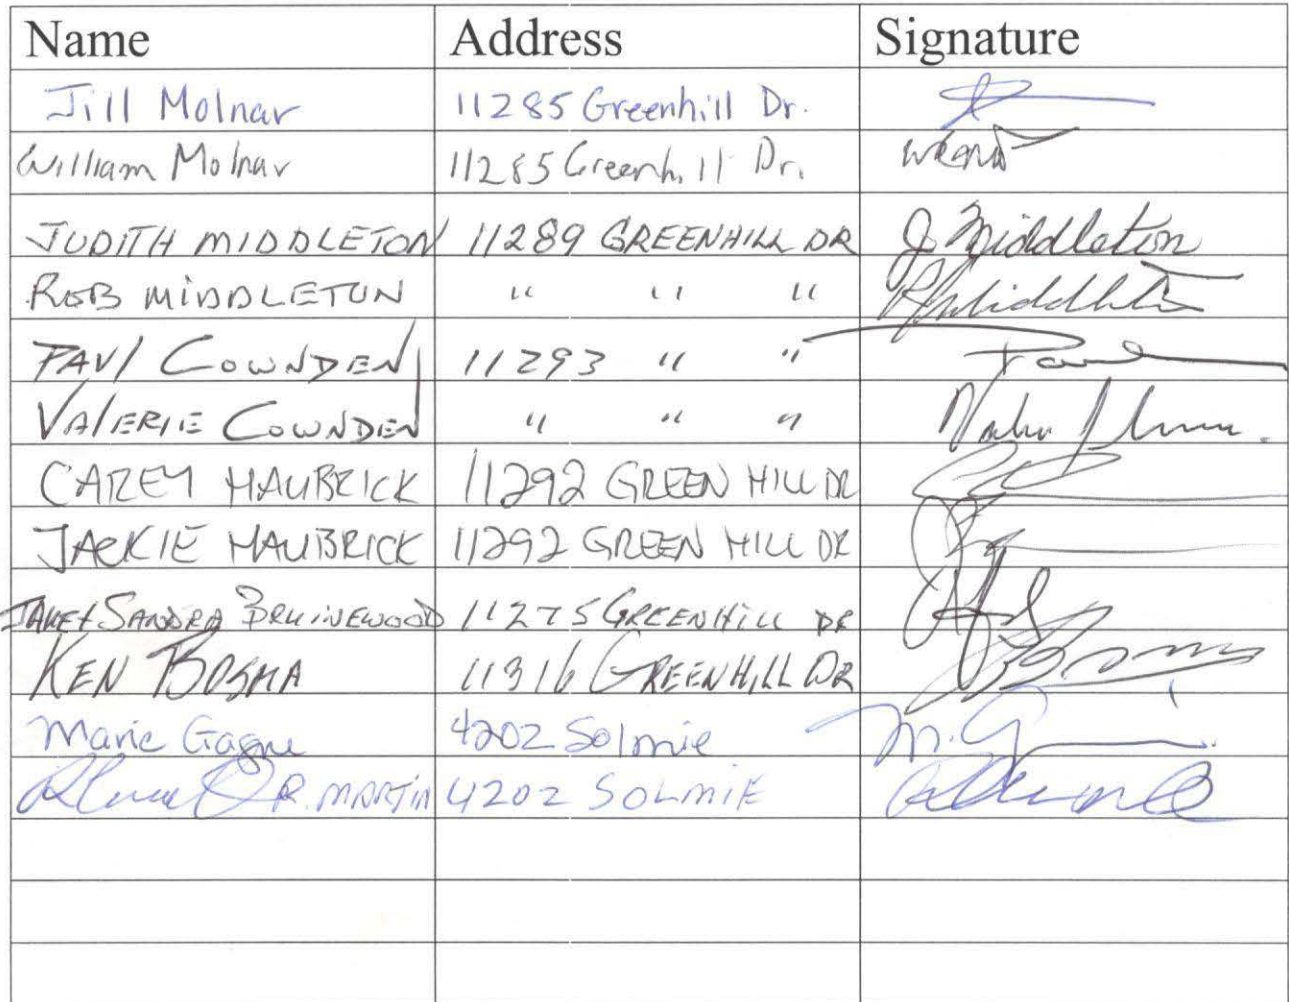 Name Address Signature
Jill Molnar 11285 Greenhill Dr.
William Molnar 11285 Greenhill Dr.
JUDITH MIDDLETON 11289 GREENHILL DR J Middleton
ROB MIDDLETON " " " Middleton
PAUl COWNDEN 11293 " " Paul
VAlERIE COWNDEN " " "
CAREY HAUBRICK 11292 GREEN HILL DR
JACKIE HAUBRICK 11292 GREEN HILL DR
SANDRA BRUINEWOOD 11275 GREENHILL DR
KEN BOSMA 11316 GREENHILL DR
Marie Gagne 4202 Solmie M. G
R. MARTIN 4202 SOLMIE